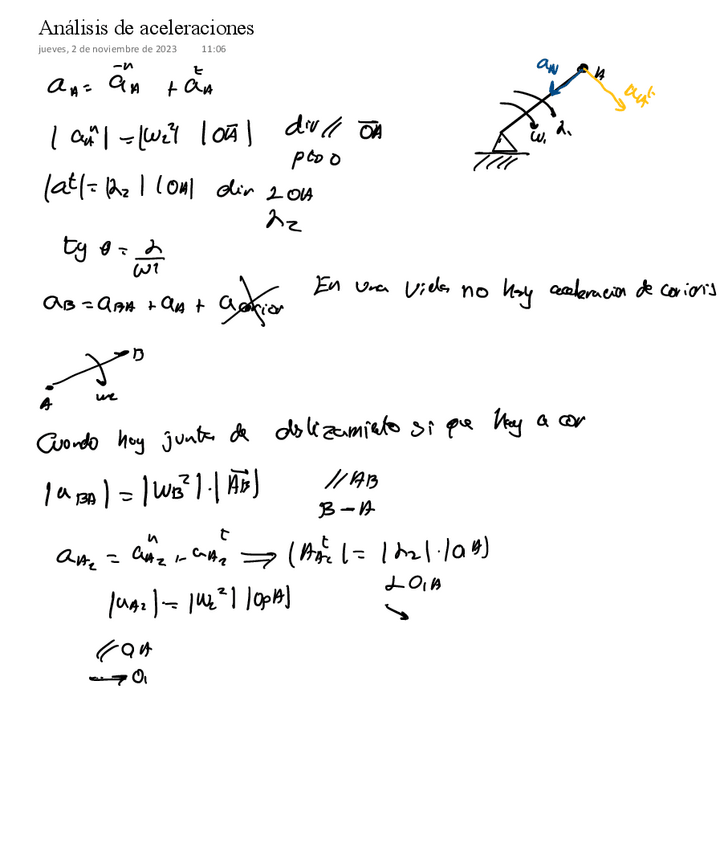 Análisis de aceleraciones
jueves, 2 de noviembre de 2023 11:06
a_A = a_A^n + a_A^t
a_N A
a_A^t
ω₁ α₁
|a_A^n| = |ω₂²| |OA| div // OA
pto O
|at| = |α₂| |OA| dir ⊥ OA
α₂
tg θ = α/ω²
a_B = a_BA + a_A + a_corior En una viela no hay aceleracion de corioris
B
A ω₂
Cuando hay junta de dslizamieto si que hay a cor
|a_BA| = |ω_B²|·|AB| // AB
B - A
a_A₂ = a_A₂^n + a_A₂^t ⟹ |A_A₂^t| = |α₂|·|OA|
⊥ O₁A
|a_A₂| = |ω₂²| |O₂A|
// OA
→ O₁